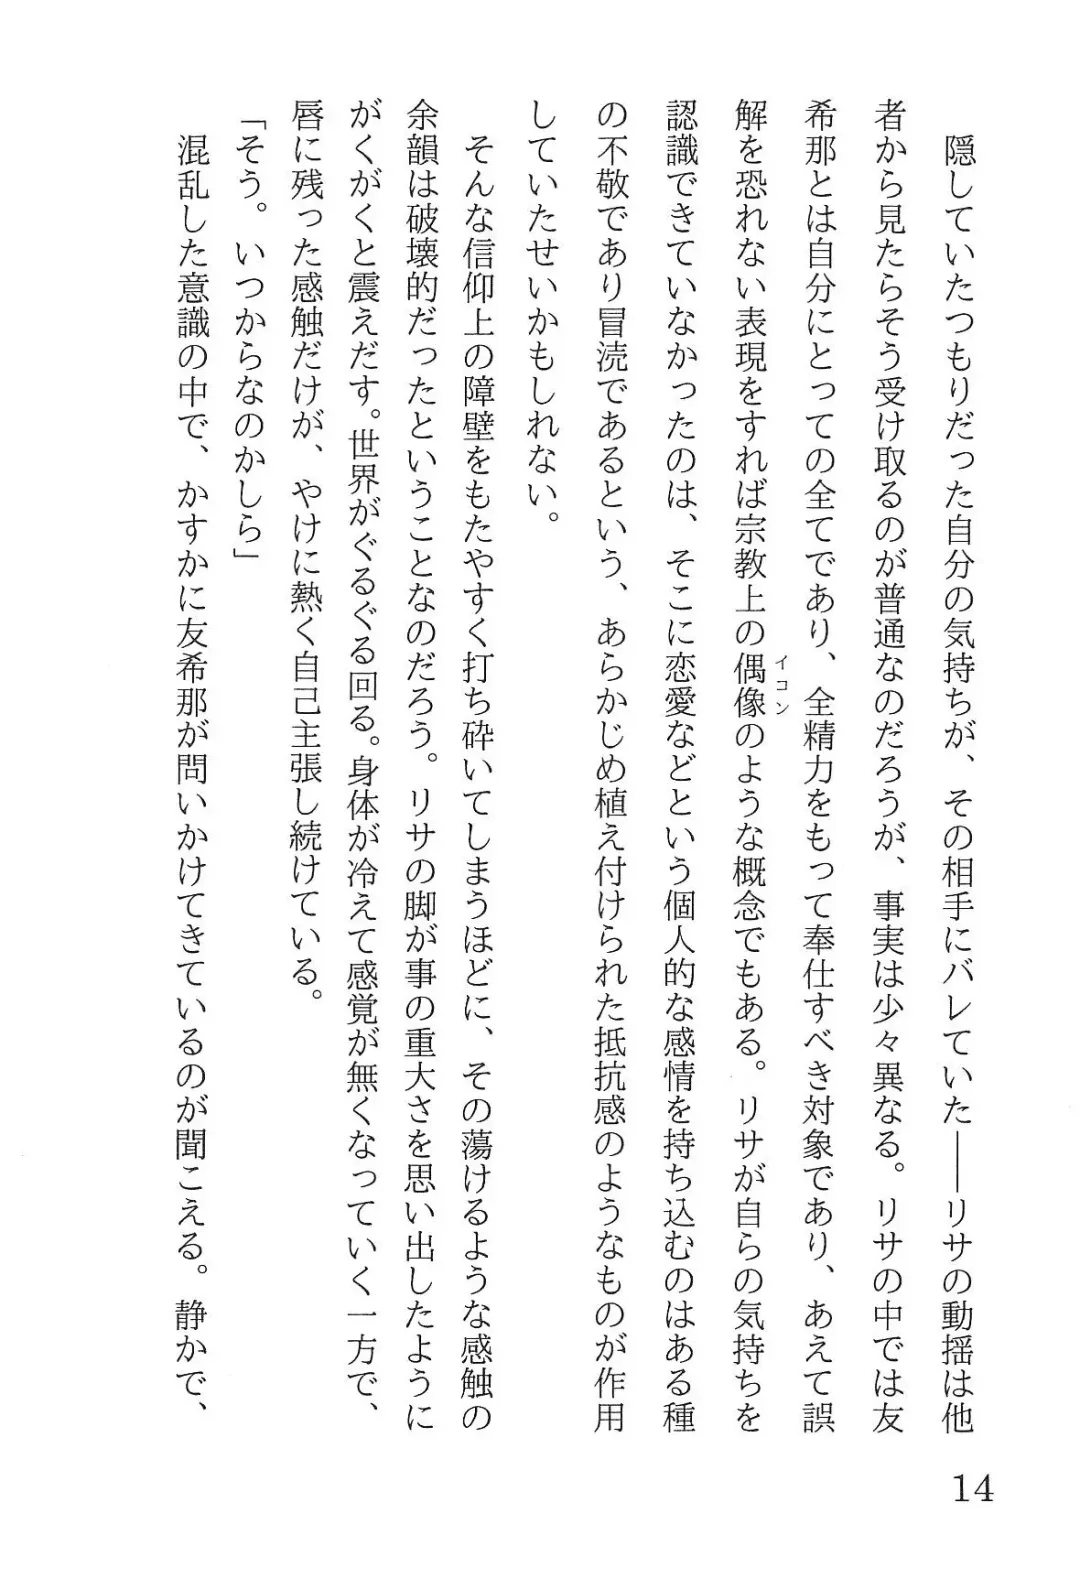 隠していたつもりだった自分の気持ちが、その相手にバレていた――リサの動揺は他
者から見たらそう受け取るのが普通なのだろうが、事実は少々異なる。リサの中では友
希那とは自分にとっての全てであり、全精力をもって奉仕すべき対象であり、あえて誤
解を恐れない表現をすれば宗教上の偶像のような概念でもある。リサが自らの気持ちを
イコン
認識できていなかったのは、そこに恋愛などという個人的な感情を持ち込むのはある種
の不敬であり冒涜であるという、あらかじめ植え付けられた抵抗感のようなものが作用
していたせいかもしれない。
　そんな信仰上の障壁をもたやすく打ち砕いてしまうほどに、その蕩けるような感触の
余韻は破壊的だったということなのだろう。リサの脚が事の重大さを思い出したように
がくがくと震えだす。世界がぐるぐる回る。身体が冷えて感覚が無くなっていく一方で、
唇に残った感触だけが、やけに熱く自己主張し続けている。
「そう。いつからなのかしら」
　混乱した意識の中で、かすかに友希那が問いかけてきているのが聞こえる。静かで、
14